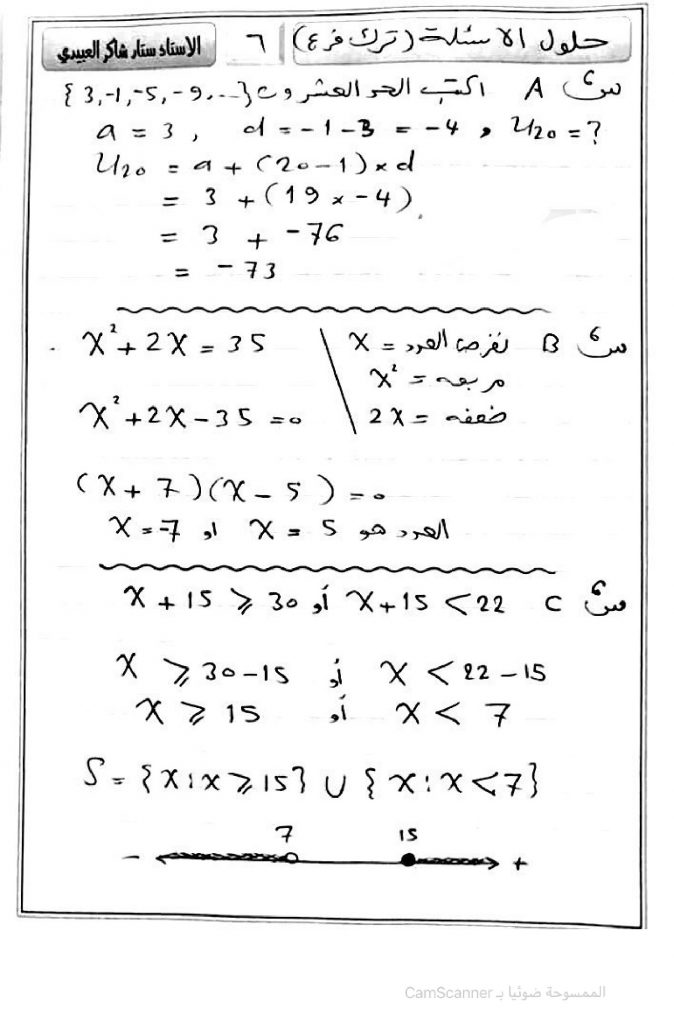 حلول الاسئلة (ترك فرع) ٦ الاستاذ ستار شاكر العبيدي
س٦ A اكتب الحد العشرون {3,-1,-5,-9,...}
a = 3 , d = -1-3 = -4 , U20 = ?
U20 = a + (20-1) × d
= 3 + (19 × -4)
= 3 + -76
= -73
س٦ B نفرض العدد = x
مربعه = x²
ضعفه = 2x
x² + 2x = 35
x² + 2x - 35 = 0
(x + 7)(x - 5) = 0
العدد هو x = 5 او x = -7
س٦ C x + 15 < 22 أو x + 15 ⩾ 30
x ⩾ 30-15 أو x < 22-15
x ⩾ 15 أو x < 7
S = {x : x ⩾ 15} ∪ {x : x < 7}
7 15
- +
الممسوحة ضوئيا بـ CamScanner